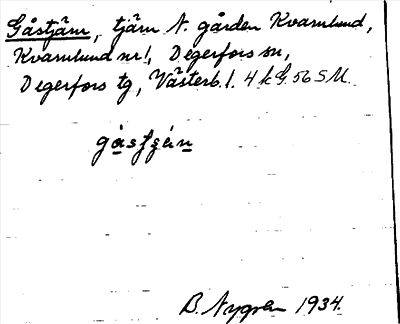 Gåstjärn, tjärn N. gården Kvarnlund,
Kvarnlund nr 1, Degerfors sn,
Degerfors tg, Västerb. l. 4 k G. 56 S M.
gåsʃʒén
B. Nygren 1934.